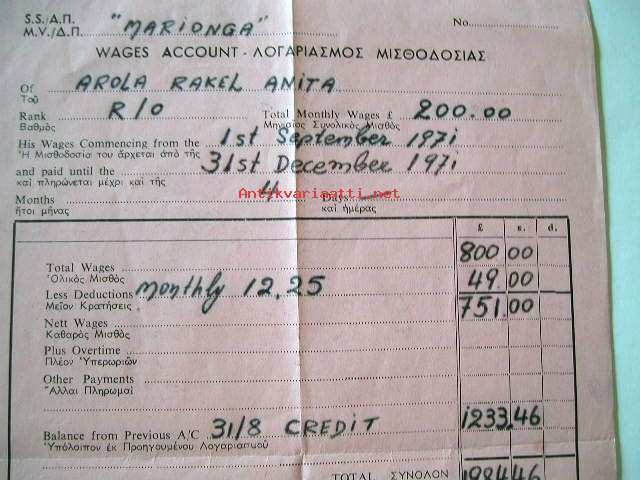 S.S./Δ.Π. "MARIONGA" No.
M.V./Δ.Π.
WAGES ACCOUNT - ΛΟΓΑΡΙΑΣΜΟΣ ΜΙΣΘΟΔΟΣΙΑΣ
Of AROLA RAKEL ANITA
Τοῦ
Rank R/O Total Monthly Wages £ 200.00
Βαθμὸς Μηνιαῖος Συνολικὸς Μισθὸς
His Wages Commencing from the 1st September 1971
Ἡ Μισθοδοσία του ἄρχεται ἀπὸ τῆς
and paid until the 31st December 1971
καὶ πληρώνεται μέχρι καὶ τῆς
Antikvariaatti.net
Months 4 Days —
ἤτοι μῆνας καὶ ἡμέρας
£ s. d.
Total Wages 800 00
Ὁλικὸς Μισθὸς
Less Deductions monthly 12.25 49.00
Μεῖον Κρατήσεις
Nett Wages 751.00
Καθαρὸς Μισθὸς
Plus Overtime
Πλέον Ὑπερωριῶν
Other Payments
Ἄλλαι Πληρωμαὶ
Balance from Previous A/C 31/8 CREDIT 1233.46
Ὑπόλοιπον ἐκ Προηγουμένου Λογαριασμοῦ
TOTAL ΣΥΝΟΛΟΝ 1984.46